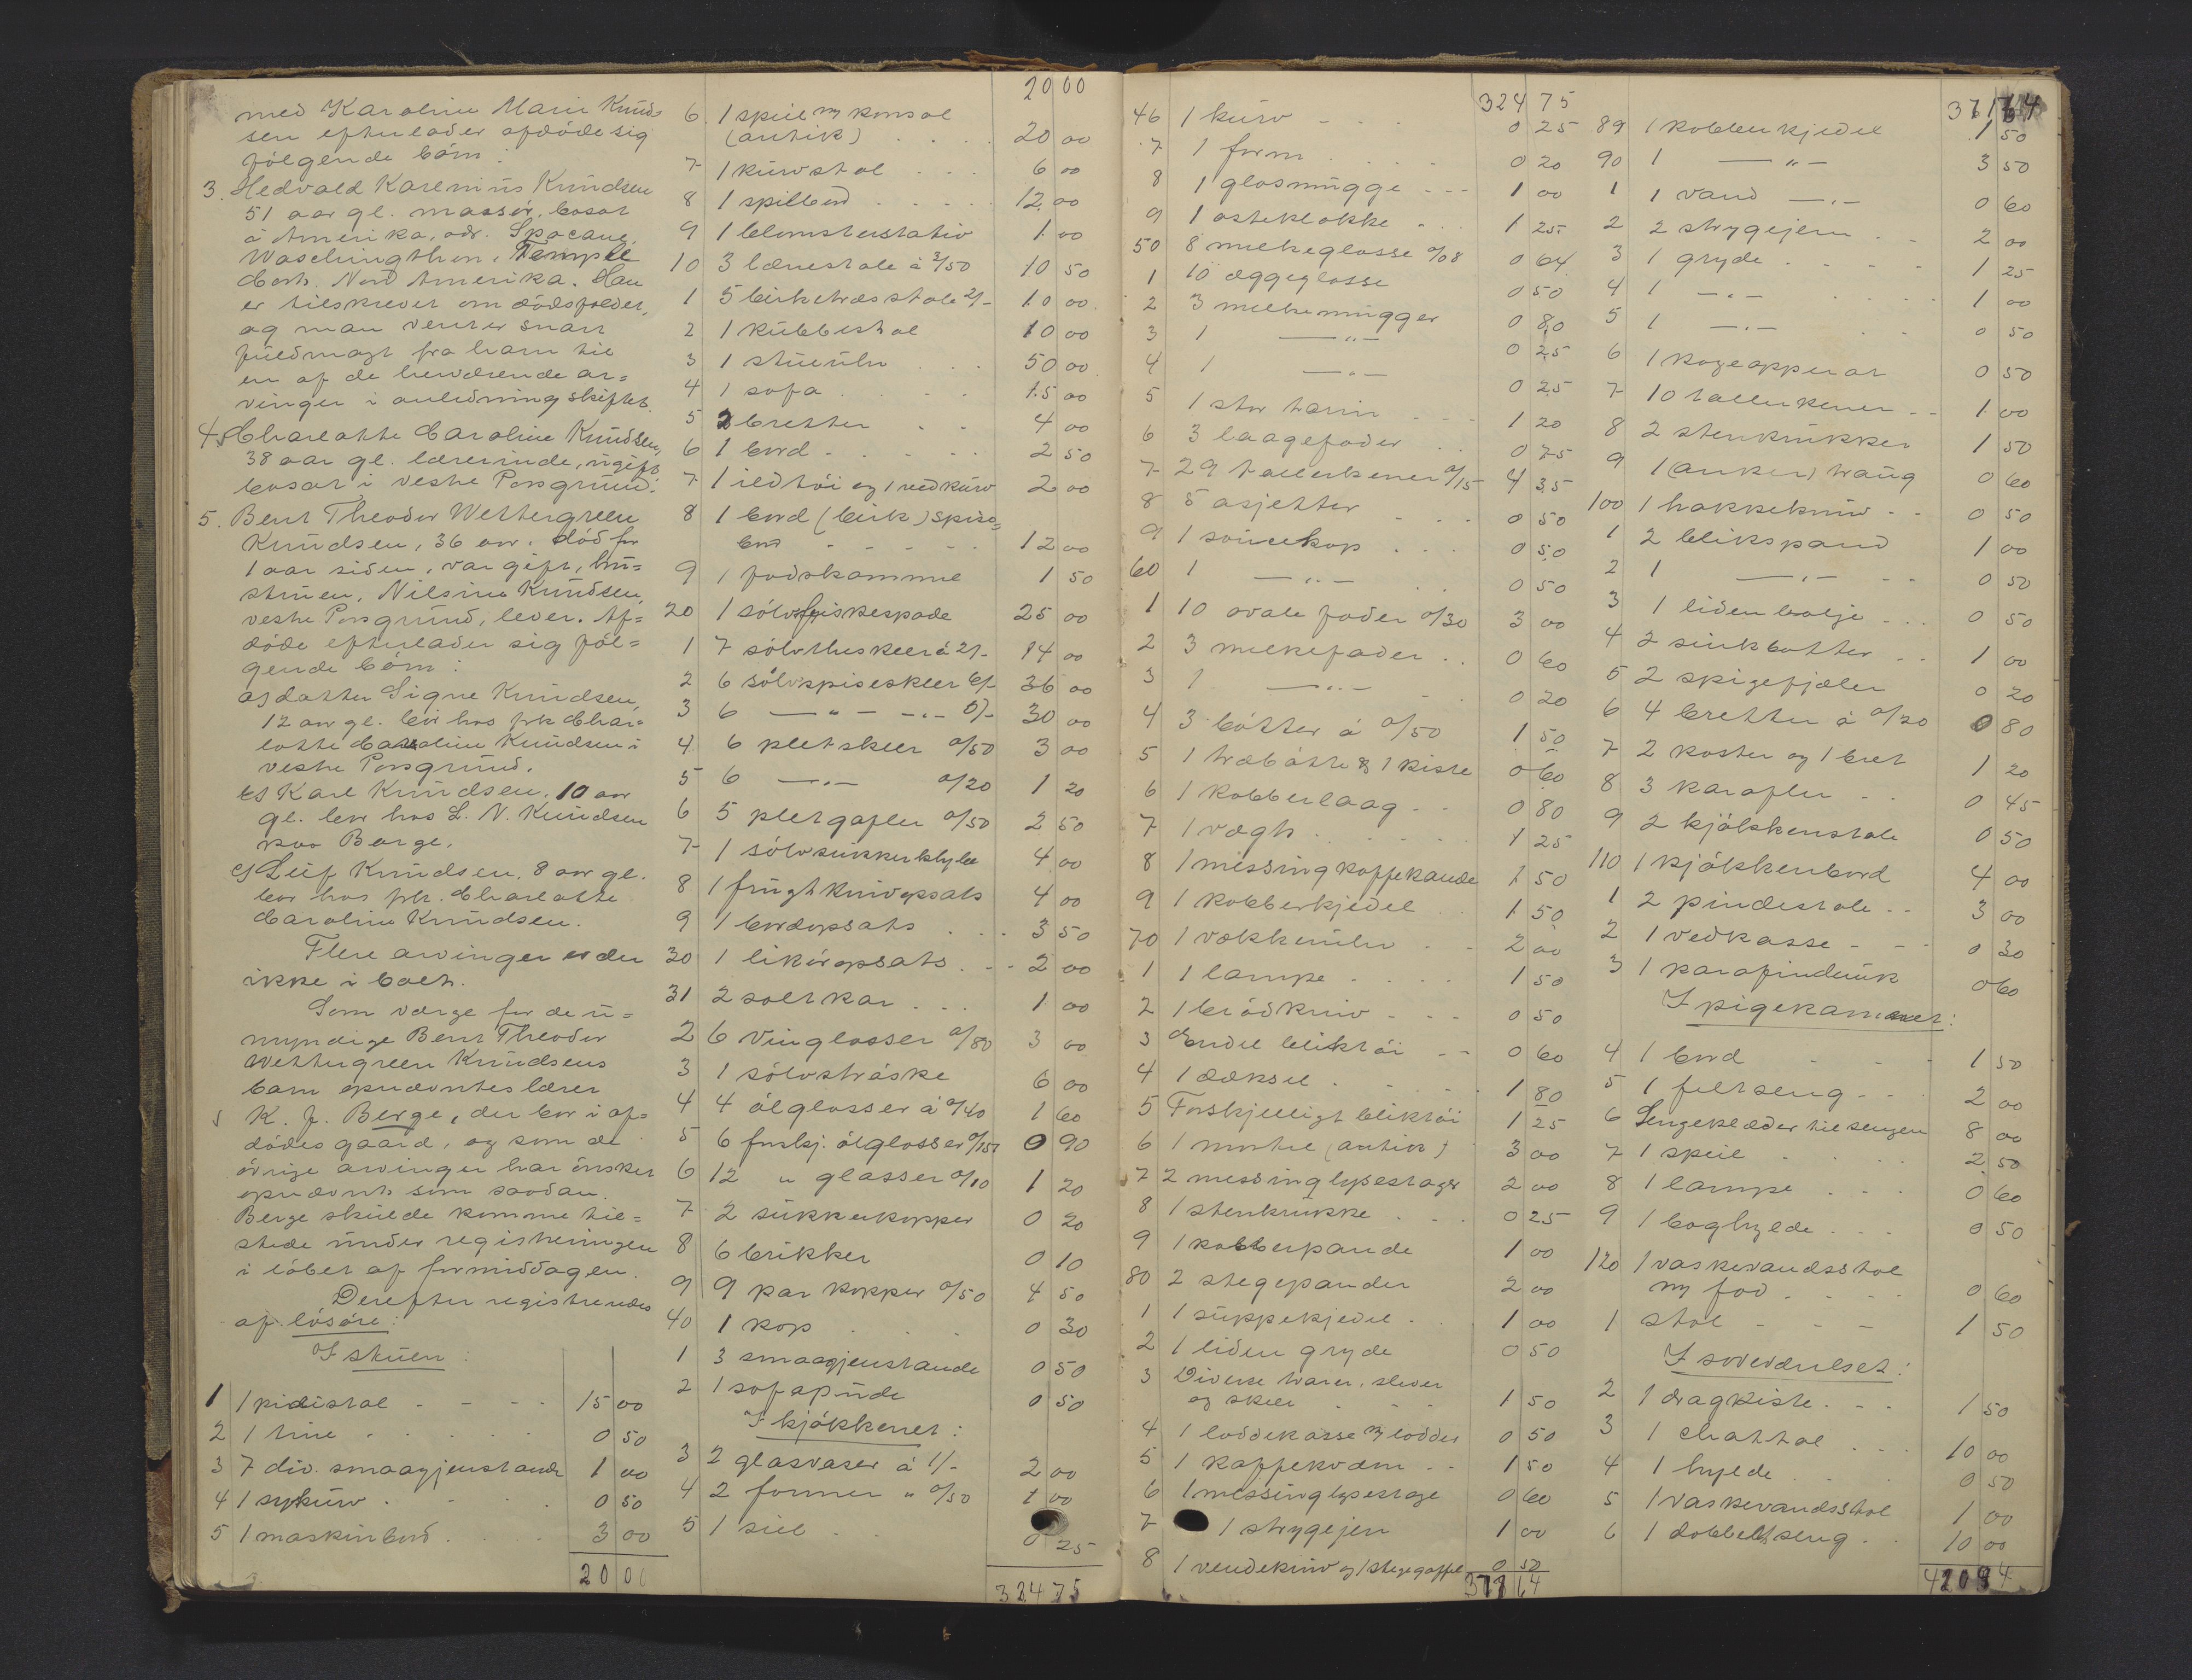 med Karoline Marie Knud-
sen efterlader afdöde sig
følgende börn:
3. Hedvald Karenius Knudsen
51 aar gl. massör, bosat
i Amerika, adr. Spocane
Waschingthon, Temple
Cort. Nord Amerika. Han
er tilskrevet om dödsfaldet,
og man venter snart
fuldmagt fra ham til
en af de herværende ar=
vinger i anledning skiftet.
4. Charlotte Caroline Knudsen,
38 aar gl. lærerinde, ugift
bosat i vestre Porsgrund.
5. Bent Theodor Wettergreen
Knudsen, 36 aar, död for
1 aar siden, var gift, hu=
struen, Nilsine Knudsen,
vestre Porsgrund, lever. Af=
döde efterlader sig föl=
gende börn:
a) datter Signe Knudsen,
12 aar gl. bor hos frk Char=
lotte Caroline Knudsen i
vestre Porsgrund.
b) Karl Knudsen, 10 aar
gl. bor hos L. N. Knudsen
paa Borge.
c) Leif Knudsen, 8 aar gl.
bor hos frk. Charlotte
Caroline Knudsen.
Flere arvinger er der
ikke i boet.
Som værge for de u=
myndige Bent Theodor
Wettergreen Knudsens
barn opnævntes lærer
K. J. Berge, der bor i af=
dödes gaard, og som de
övrige arvinger har önsket
opnævnt som saadan.
Berge skulde komme til=
stede under registreringen
i löbet af formiddagen.
Derefter registreredes
af lösöre:
I stuen:
1 1 pidistal 15 00
2 1 tine 0 50
3 7 div. smaagjenstande 1 00
4 1 sykurv 0 50
5 1 maskinbord 3 00
20 00
20 00
6. 1 speil m konsol
(antik) 20 00
7 1 kurvstol 6 00
8 1 spillbord 12 00
9 1 blomsterstativ 1 00
10 3 lænestole à 3/50 10 50
1 5 birketræs stole 2/- 10 00
2 1 kubbestol 10 00
3 1 stueuhr 50 00
4 1 sofa 15 00
5 2 bretter 4 00
6 1 bord 2 50
7 1 ildtöi og 1 vedkurv 2 00
8 1 bord (birk) spise=
bord 12 00
9 1 fodskammel 1 50
20 1 sölvfiskespade 25 00
1 7 sölvtheskeer à 2/- 14 00
2 6 sölvspiseskeer 6/- 36 00
3 6 —"— -"- 5/- 30 00
4 6 pletskeer 0/50 3 00
5 6 —"— 0/20 1 20
6 5 pletgafler 0/50 2 50
7 1 sölvsukkerklype 4 00
8 1 frugtknivopsats 4 00
9 1 bordopsats 3 50
30 1 liköropsats 2 00
31 2 saltkar 1 00
2 6 vinglasser 0/80 3 00
3 1 sölvstråske 6 00
4 4 ölglasser à 0/40 1 60
5 6 forskj. ölglasser 0/15 0 90
6 12 " glasser 0/10 1 20
7 2 sukkerkopper 0 20
8 6 brikker 0 10
9 9 par kopper 0/50 4 50
40 1 kop 0 30
1 3 smaagjenstande 0 50
2 1 sofapude 0 50
I kjökkenet:
3 2 glasvaser à 1/- 2 00
4 2 former " 0/50 1 00
5 1 sil 0 25
324 75
324 75
46 1 kurv 0 25
7 1 form 0 20
8 1 glasmugge 1 00
9 1 osteklokke 1 25
50 8 melkeglasse 0/08 0 64
1 10 æggeglasse 0 50
2 3 melkemugger 0 80
3 1 —"— 0 25
4 1 —"— 0 25
5 1 stor tærin 1 20
6 3 laagefader 0 75
7 29 tallerkener 0/15 4 35
8 5 asjetter 0 50
9 1 sousekop 0 50
60 1 —"— 0 50
1 10 ovale fader 0/30 3 00
2 3 melkefader 0 60
3 1 —"— 0 20
4 3 bötter à 0/50 1 50
5 1 træbötte & 1 kiste 0 60
6 1 kobberlaag 0 80
7 1 vægt 1 25
8 1 messingkaffekande 1 50
9 1 kobberkjedel 1 50
70 1 vækkeuhr 2 00
1 1 lampe 1 50
2 1 brödkniv 0 50
3 Endel bliktöi 0 60
4 1 dæksel 1 80
5 Forskjelligt bliktöi 1 25
6 1 morter (antik) 3 00
7 2 messinglysestager 2 00
8 1 stenkrukke 0 25
9 1 kobberpande 1 00
80 2 stegepander 2 00
1 1 suppekjedel 1 00
2 1 liden gryde 0 50
3 Diverse varer, slever
og skeer 1 50
4 1 loddekasse m lodder 0 50
5 1 kaffekværn 1 50
6 1 messinglysestage 0 60
7 1 strygejern 1 00
8 1 vendekniv og 1 stegegaffel 0 50
64
64
89 1 kobberkjedel 1 50
90 1 —"— 3 50
1 1 vand —"— 0 60
2 2 strygejern 2 00
3 1 gryde 1 25
4 1 —"— 1 00
5 1 —"— 0 50
6 1 kogeapperat 0 50
7 10 tallerkener 1 00
8 2 stenkrukker 1 50
9 1 (anker) traug 0 60
100 1 hakkekniv 0 50
1 2 blikspand 1 00
2 1 —"— 0 50
3 1 liden balje 0 50
4 2 sinkbötter 1 00
5 2 spigefjæler 0 20
6 4 bretter à 0/20 0 80
7 2 koster og 1 bret 1 20
8 3 karafler 0 45
9 2 kjökkenstole 0 50
110 1 kjökkenbord 4 00
1 2 pindestole 3 00
2 1 vedkasse 0 30
3 1 parafindunk 0 60
I pigekammeret:
4 1 bord 1 50
5 1 feltseng 2 00
6 Sengeklæder til sengen 8 00
7 1 speil 2 50
8 1 lampe 0 60
9 1 boghylde 0 50
120 1 vaskevandsstol
m fad 0 60
1 stol 1 50
I soveværelset:
2 1 dragkiste 1 50
3 1 chattol 10 00
4 1 hylde 0 50
5 1 vaskevandsstol 1 00
6 1 dobbeltseng 10 00